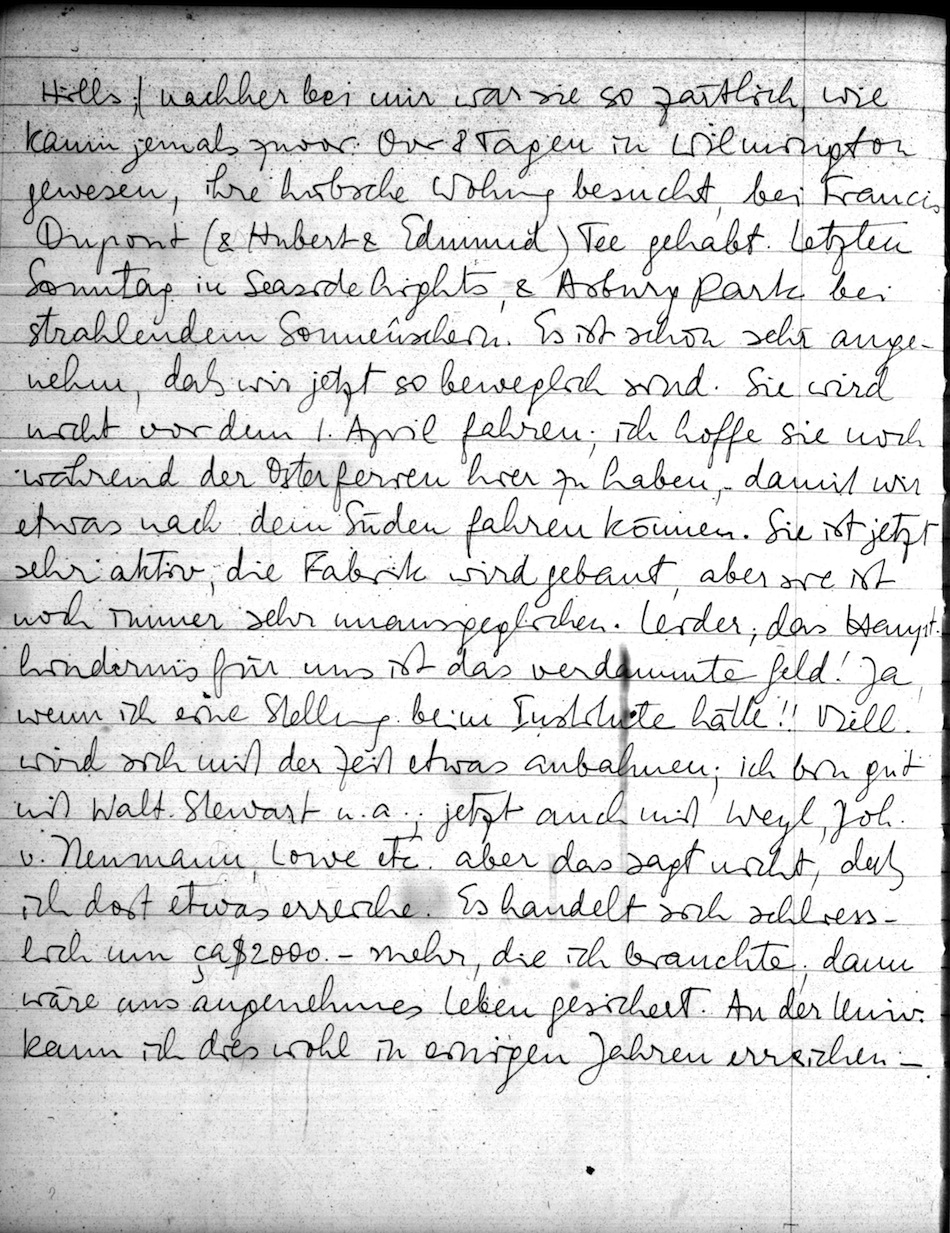 Hills; nachher bei mir war sie so zärtlich, wie
kaum jemals zuvor. Vor 8 Tagen in Wilmington
gewesen, ihre hübsche Wohng besucht, bei Francis
Dupont (& Hubert & Edmund) Tee gehabt. Letzten
Sonntag in Seaside hights, & Asbury Park bei
strahlendem Sonnenschein. Es ist schon sehr ange-
nehm, daß wir jetzt so beweglich sind. Sie wird
nicht vor dem 1. April fahren; ich hoffe sie noch
während der Osterferien hier zu haben, - damit wir
etwas nach dem Süden fahren können. Sie ist jetzt
sehr aktiv, die Fabrik wird gebaut, aber sie ist
noch immer sehr unausgeglichen. Leider; das Haupt-
hindernis für uns ist das verdammte Geld! Ja,
wenn ich eine Stellung beim Institute hätte!! Viell.
wird sich mit der Zeit etwas anbahnen; ich bin gut
mit Walt. Stewart u.a.; jetzt auch mit Weyl, Joh.
v. Neumann, Lowe etc. aber das sagt nicht, daß
ich dort etwas erreiche. Es handelt sich schliess-
lich um ca $2000.- mehr, die ich brauchte, dann
wäre uns angenehmes Leben gesichert. An der Univ.
kann ich dies wohl in einigen Jahren erreichen -